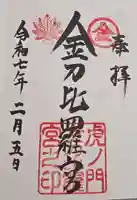 奉拝
金刀比羅宮
虎ノ門
宮之印
令和七年二月五日